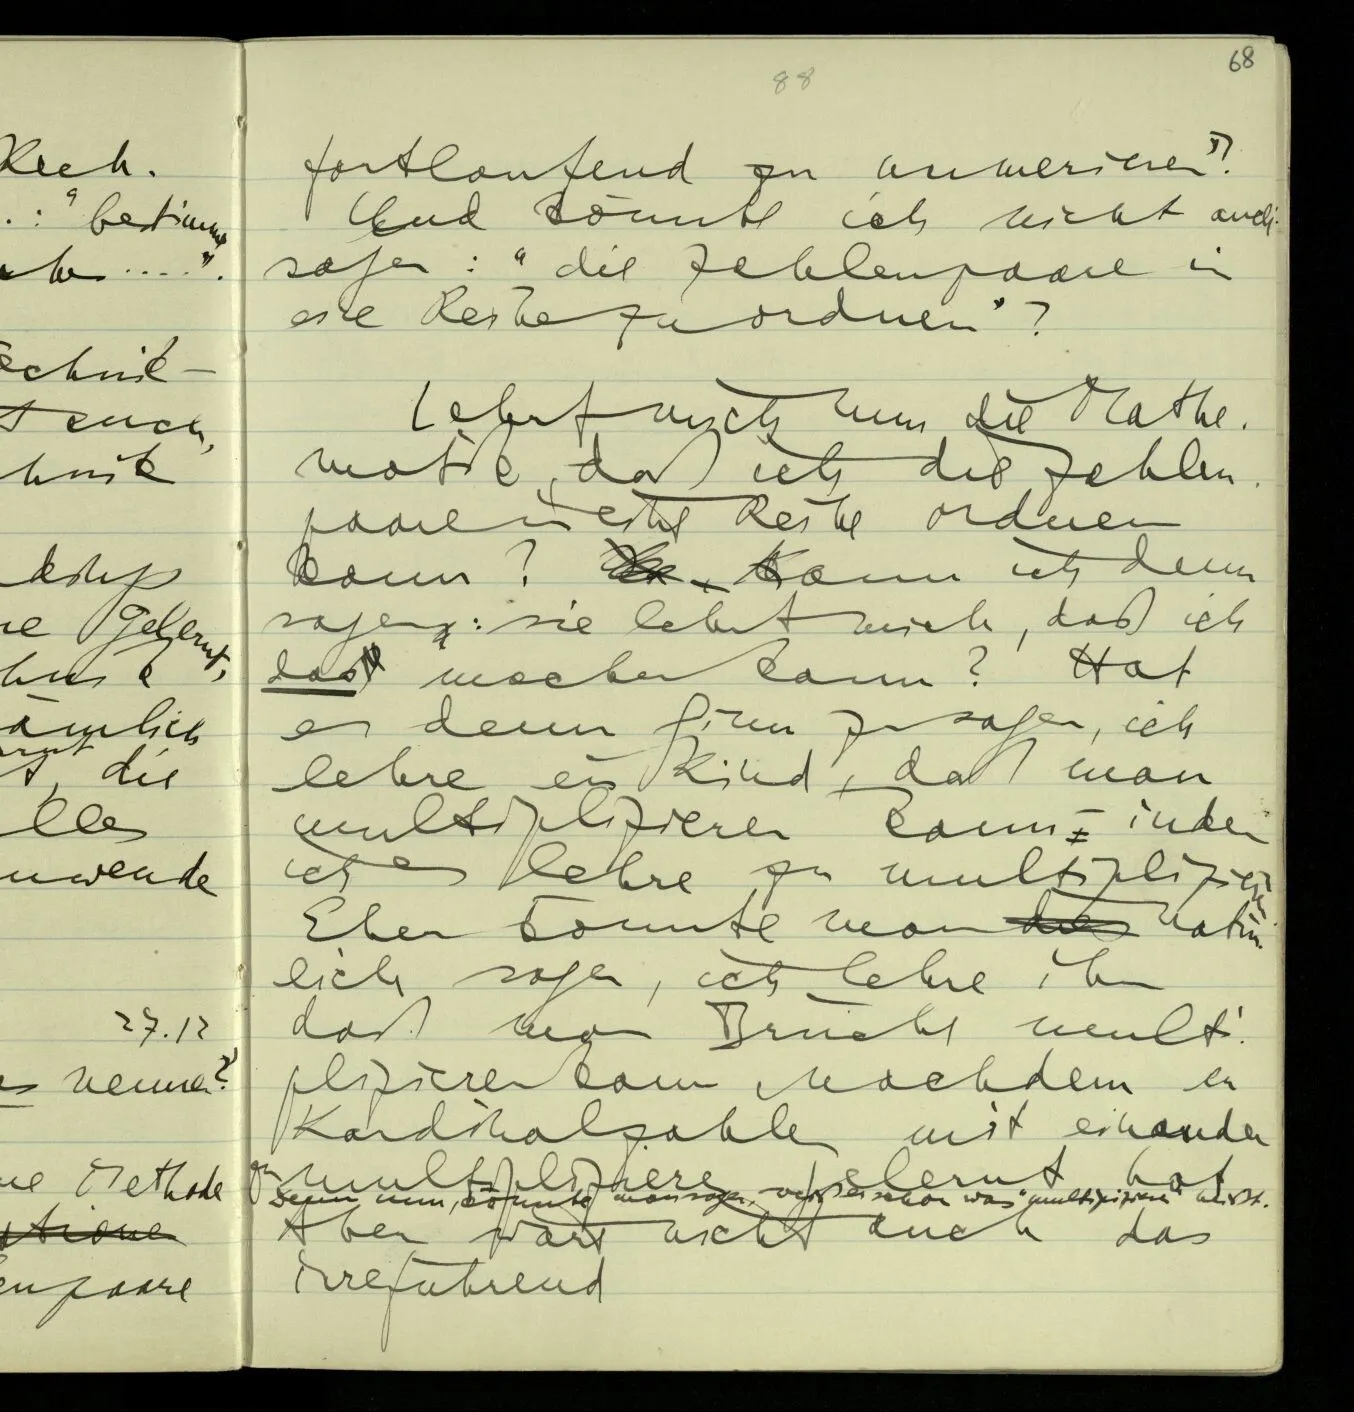 Rech.
.: "bestimm
....".
echnik-
t euch,
chnik
ne gelernt,
hnik
ämlich
t, die
lles
nwende
27.12
es nenne?"
ne Methode
enpaare
68
88
fortlaufend zu numerieren"?
Und könnte ich nicht auch
sagen: "die Zahlenpaare in
eine Reihe zu ordnen"?
Lehrt mich nun die Mathe-
matik, daß ich die Zahlen-
paare in eine Reihe ordnen
kann? Kann ich denn
sagen: sie lehrt mich, daß ich
das machen kann? Hat
es denn Sinn zu sagen, ich
lehre ein Kind, daß man
multiplizieren kann – indem
ich es lehre zu multiplizieren
Eher könnte man natür-
lich sagen, ich lehre ihn
daß man Brüche multi-
plizieren kann nachdem er
Kardinalzahlen mit einander
zu multiplizieren gelernt hat
Denn nun, könnte man sagen, weiß er schon was "multiplizieren" heißt.
Aber wäre nicht auch das
irreführend